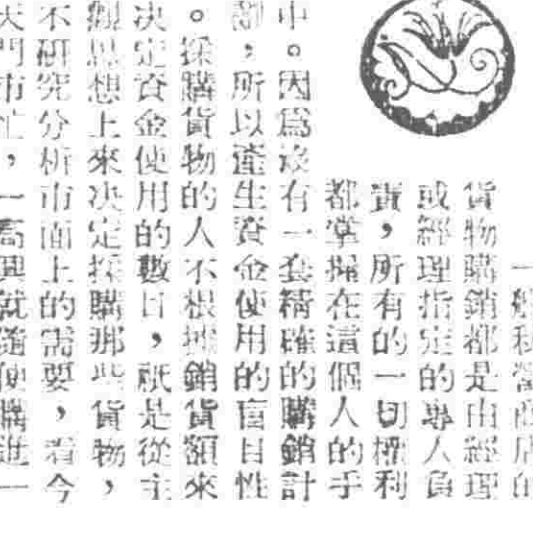 一般私營商店的
貨物購銷都是由經理
或經理指定的專人負
責，所有的一切權利
都掌握在這個人的手
中。因為沒有一套精確的購銷計
劃，所以產生資金使用的盲目性
。採購貨物的人不根據銷貨額來
决定資金使用的數目，祇是從主
觀思想上來决定採購那些貨物，
不研究分析市面上的需要，看今
天門市忙，一高興就隨便購進一